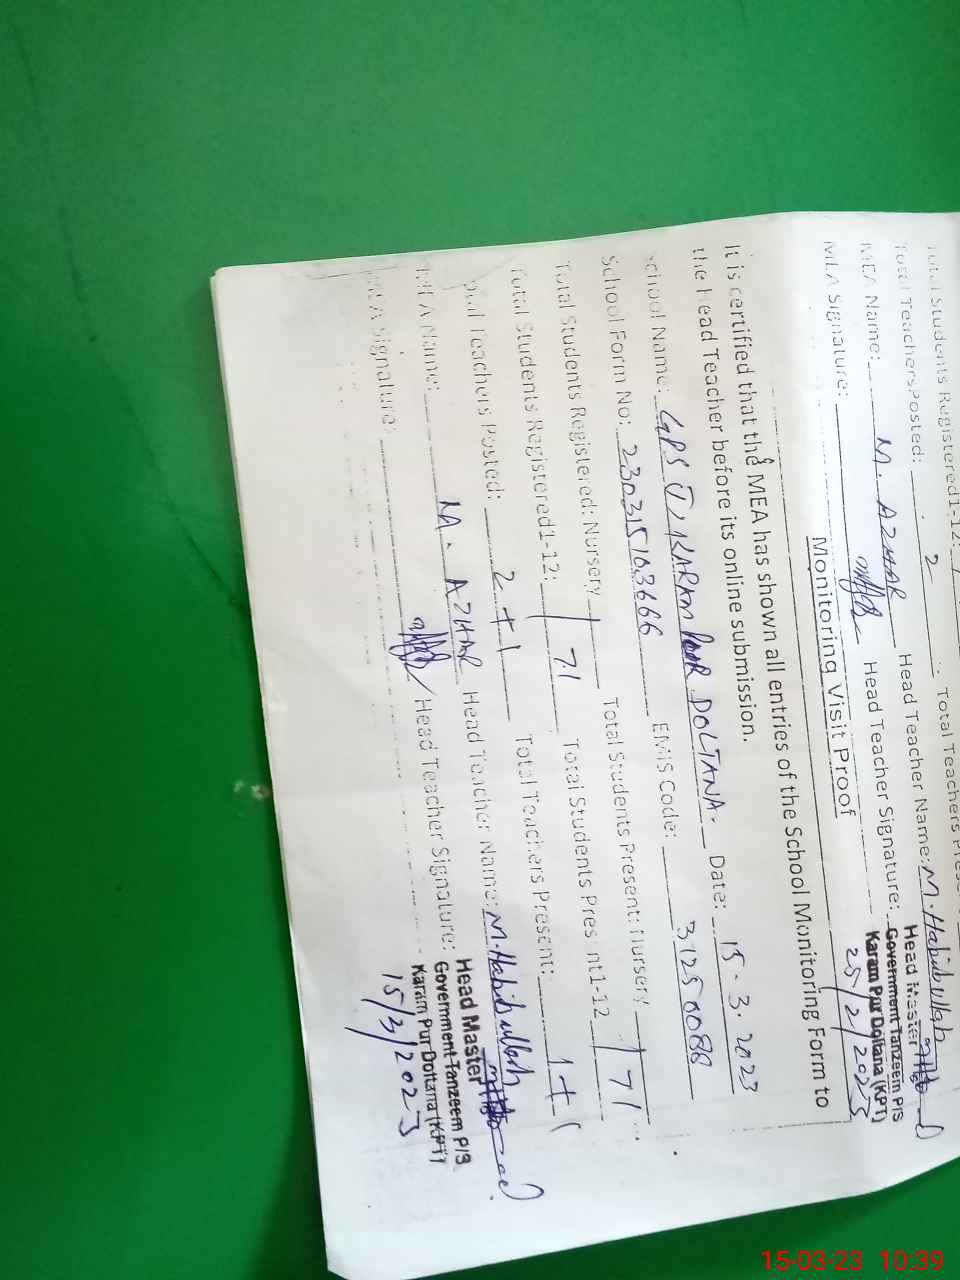 Total Students Registered1-12:
Total Teachers Posted: 2 Total Teachers
MEA Name: M. AZHAR Head Teacher Name: M. Habib ullah
MEA Signature: Head Teacher Signature:
Head Master
Government Tanzeem P/S
Karam Pur Doltana (KPT)
25/2/2023
Monitoring Visit Proof
It is certified that the MEA has shown all entries of the School Monitoring Form to
the Head Teacher before its online submission.
School Name: GPS T, KARAM DOLTANA. Date: 15.3.2023
School Form No: EMIS Code: 31250088
Total Students Registered: Nursery Total Students Present: Nursery
Total Students Registered1-12: 71 Total Students Present1-12 71
Total Teachers Posted: 2+1 Total Teachers Present: 1+1
MEA Name: M. AZHAR Head Teacher Name: M. Habib ullah
MEA Signature: Head Teacher Signature:
Head Master
Government Tanzeem P/S
Karam Pur Doltana (KPT)
15/3/2023
15-03-23 10:39